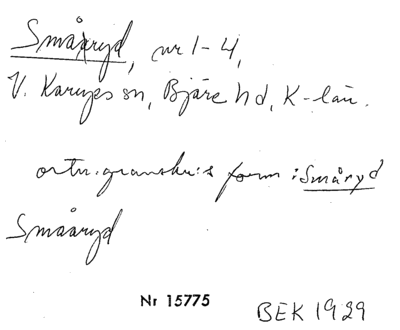 Småryd, nr 1-4,
V. Karups sn, Bjäre hd, K-län.
ortn.granskn:s form: Småryd
Småryd
Nr 15775
BEK 1929